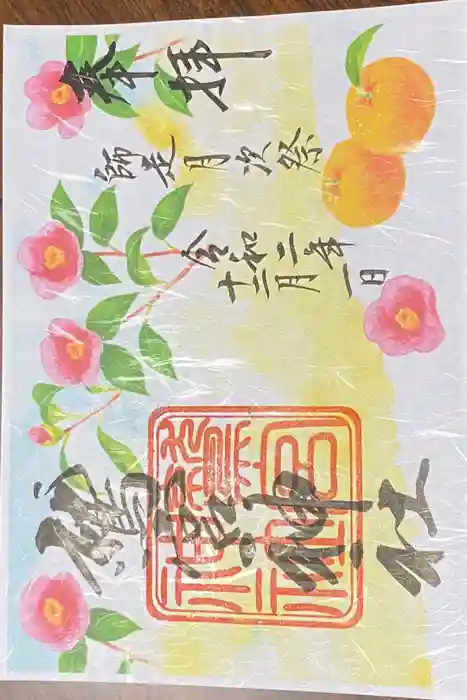 奉拝
師走月次祭
令和二年
十二月一日
神社